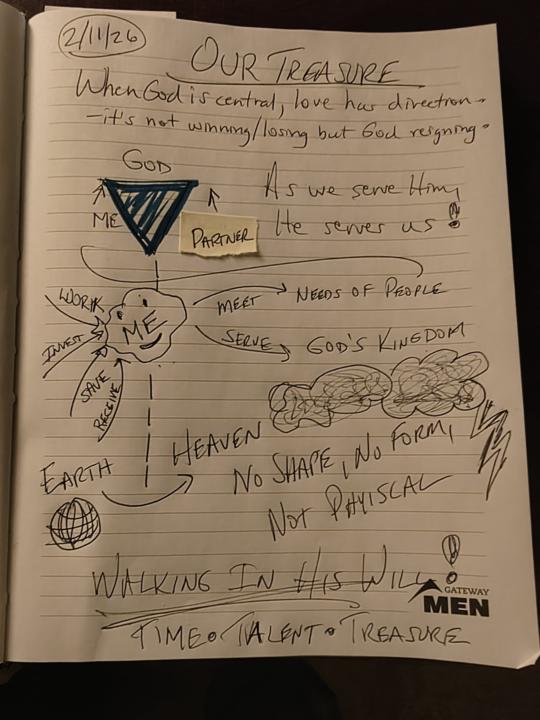 2/11/26
OUR TREASURE
When God is central, love has direction
- it's not winning/losing but God reigning.
GOD
ME
PARTNER
As we serve Him,
He serves us!
WORK
INVEST
SAVE
RECEIVE
ME
MEET NEEDS OF PEOPLE
SERVE GOD'S KINGDOM
EARTH
HEAVEN
NO SHAPE, NO FORM,
NOT PHYISCAL
WALKING IN HIS WILL!
GATEWAY
MEN
TIME • TALENT • TREASURE